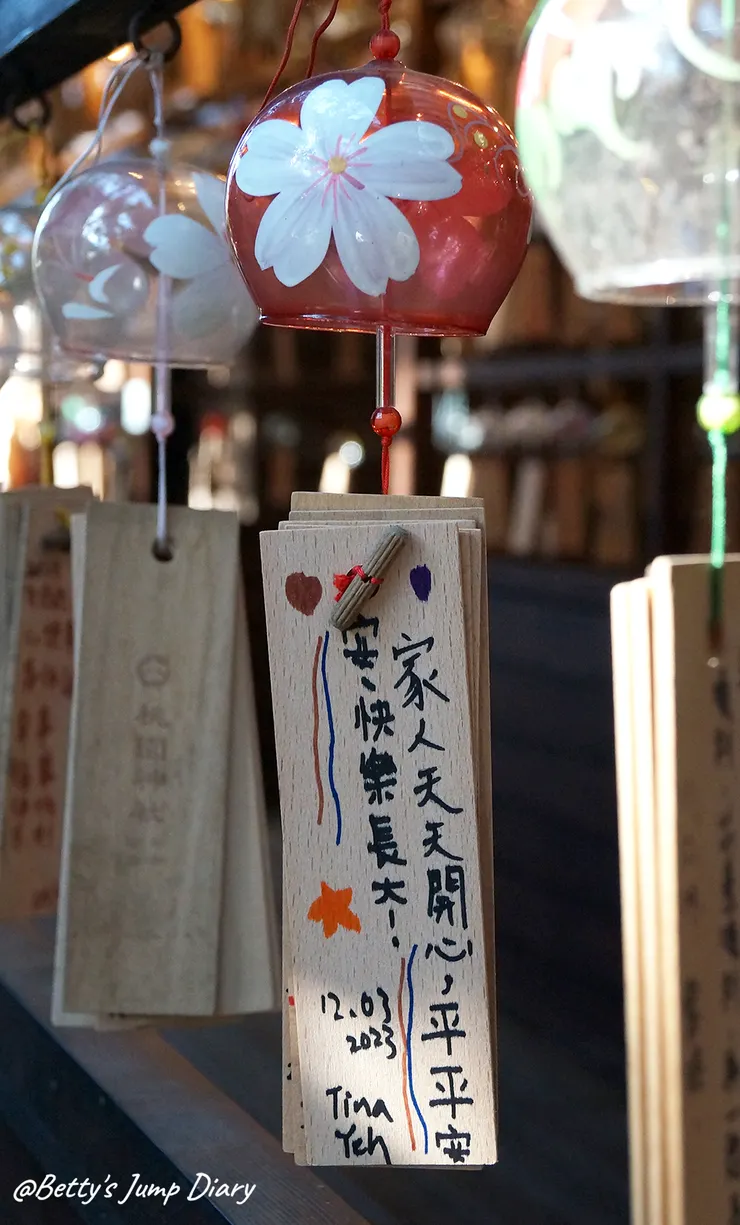 家人天天開心,平平安
安、快樂長大!
12.03
2023
Tina
Yeh
桃園神社
@Betty's Jump Diary